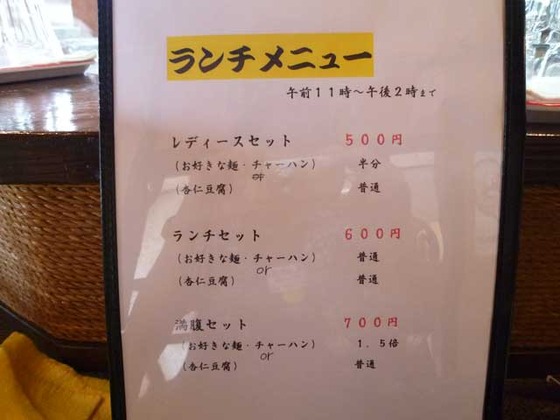 ランチメニュー
午前11時～午後2時まで
レディースセット 500円
(お好きな麺・チャーハン) 半分
or
(杏仁豆腐) 普通
ランチセット 600円
(お好きな麺・チャーハン) 普通
or
(杏仁豆腐) 普通
満腹セット 700円
(お好きな麺・チャーハン) 1.5倍
or
(杏仁豆腐) 普通